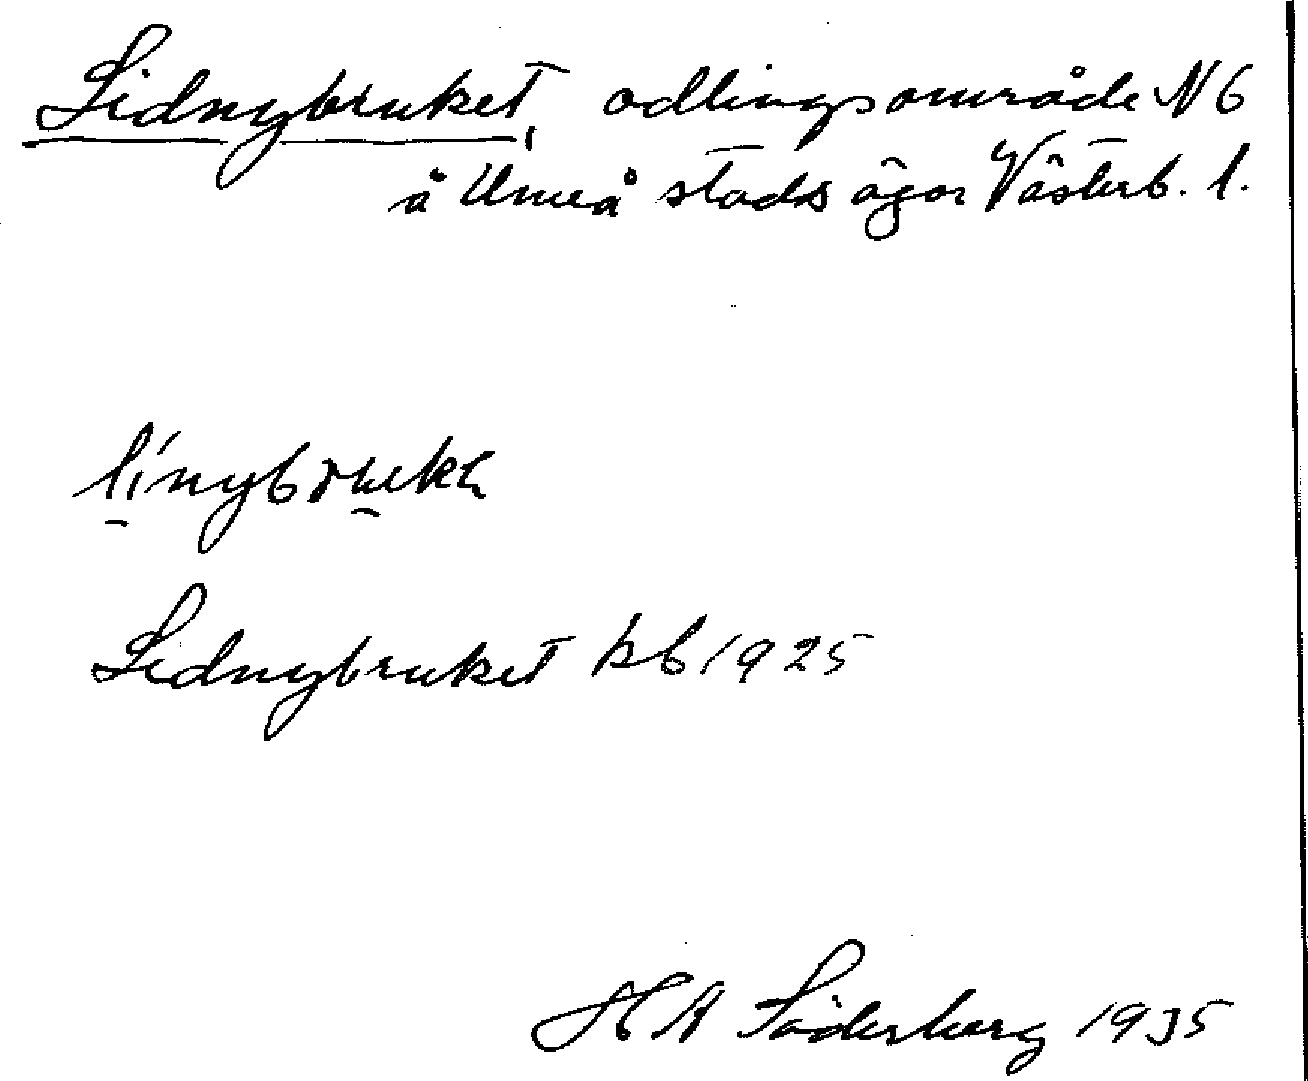 Lidnybruket, odlingsområde N 6
å Umeå stads ägor Västerb. l.
línybrukh
Lidnybruket kb 1925
H A Söderberg 1935